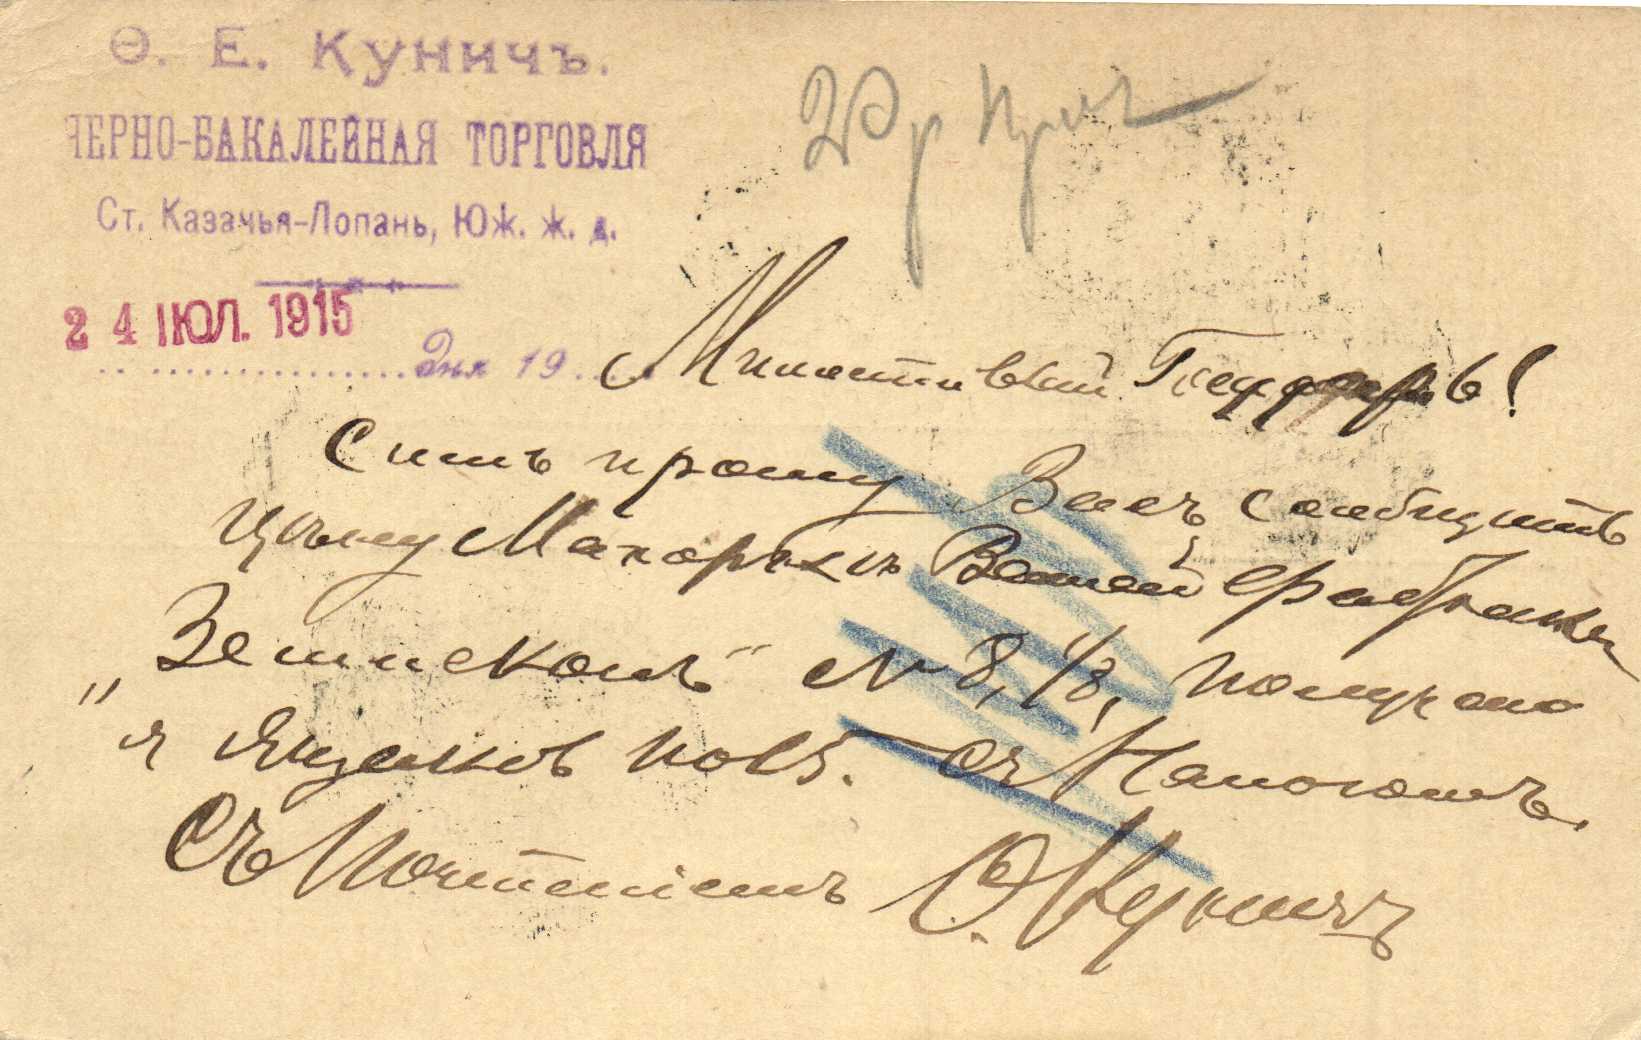 Ѳ. Е. Куничъ.
ЧЕРНО-БАКАЛЕЙНАЯ ТОРГОВЛЯ
Ст. Казачья-Лопань, Юж. ж. д.
24 ІЮЛ. 1915
дня 19
Милостивый Государь!
Симъ прошу Васъ сообщить
цѣну Махорки Вашей фабрики
„Земископъ“ № 8, 1/8,
и Ящиковъ съ Налогомъ.
Съ Почтеніемъ Ѳ. Куничъ